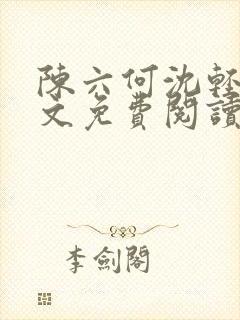 陳六何沈輕
文免費閱讀
李劍閣